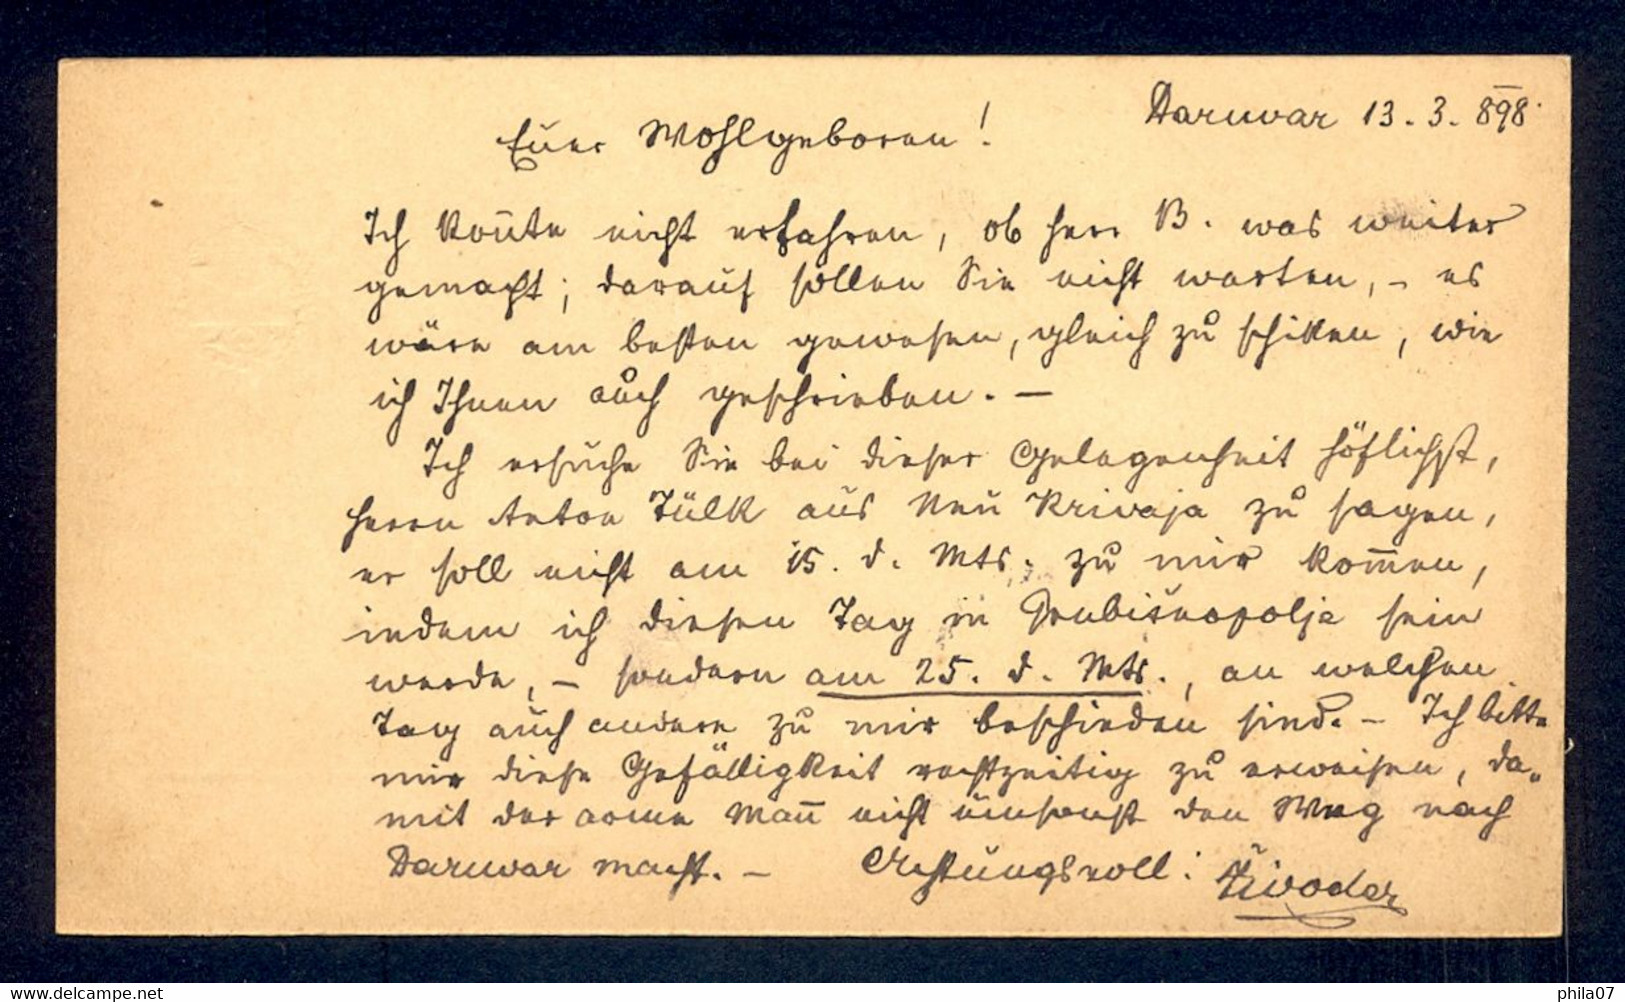 Daruvar 13.3.898.
Euer Wohlgeboren!
Ich kon̄te nicht erfahren, ob Herr B. was weiter
gemacht; darauf sollen Sie nicht warten, – es
wäre am besten gewesen, gleich zu schiken, wie
ich Ihnen auch geschrieben. –
Ich ersuche Sie bei dieser Gelegenheit höflichst,
Herrn Anton Tülk aus Neu Krivaja zu sagen,
er soll nicht am 15. d. Mts. zu mir kom̄en,
indem ich diesen Tag in Grubišnopolje sein
werde, – sondern am 25. d. Mts., an welchen
Tag auch andere zu mir beschieden sind. – Ich bitte
mir diese Gefälligkeit rechtzeitig zu erweisen, da-
mit der arme Man̄ nicht umsonst den Weg nach
Daruvar macht. – Achtungsvoll:
delcampe.net
phila07